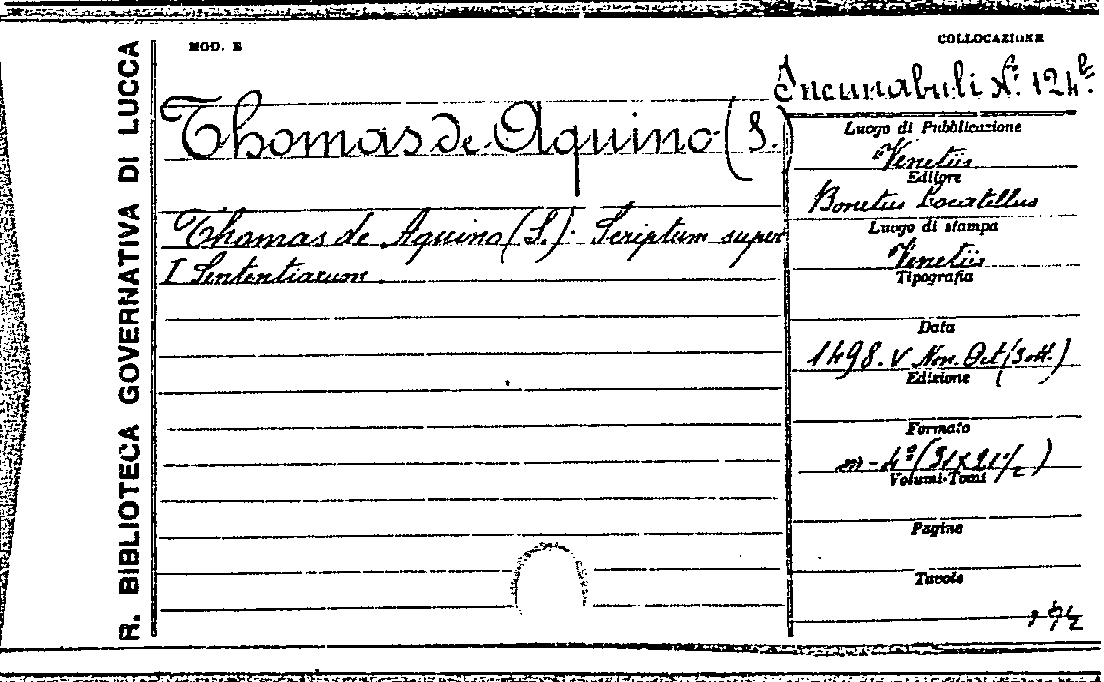 R. BIBLIOTECA GOVERNATIVA DI LUCCA
MOD. E
COLLOCAZIONE
Incunabuli N.º 124
Thomas de Aquino (S.)
Thomas de Aquino (S.). Scriptum super
I Sententiarum.
Luogo di Pubblicazione
Venetiis
Editore
Bonetus Locatellus
Luogo di stampa
Venetiis
Tipografia
Data
1498. V Non. Oct (3 ott.)
Edizione
Formato
4º (31x21½)
Volumi-Tomi
Pagine
Tavole